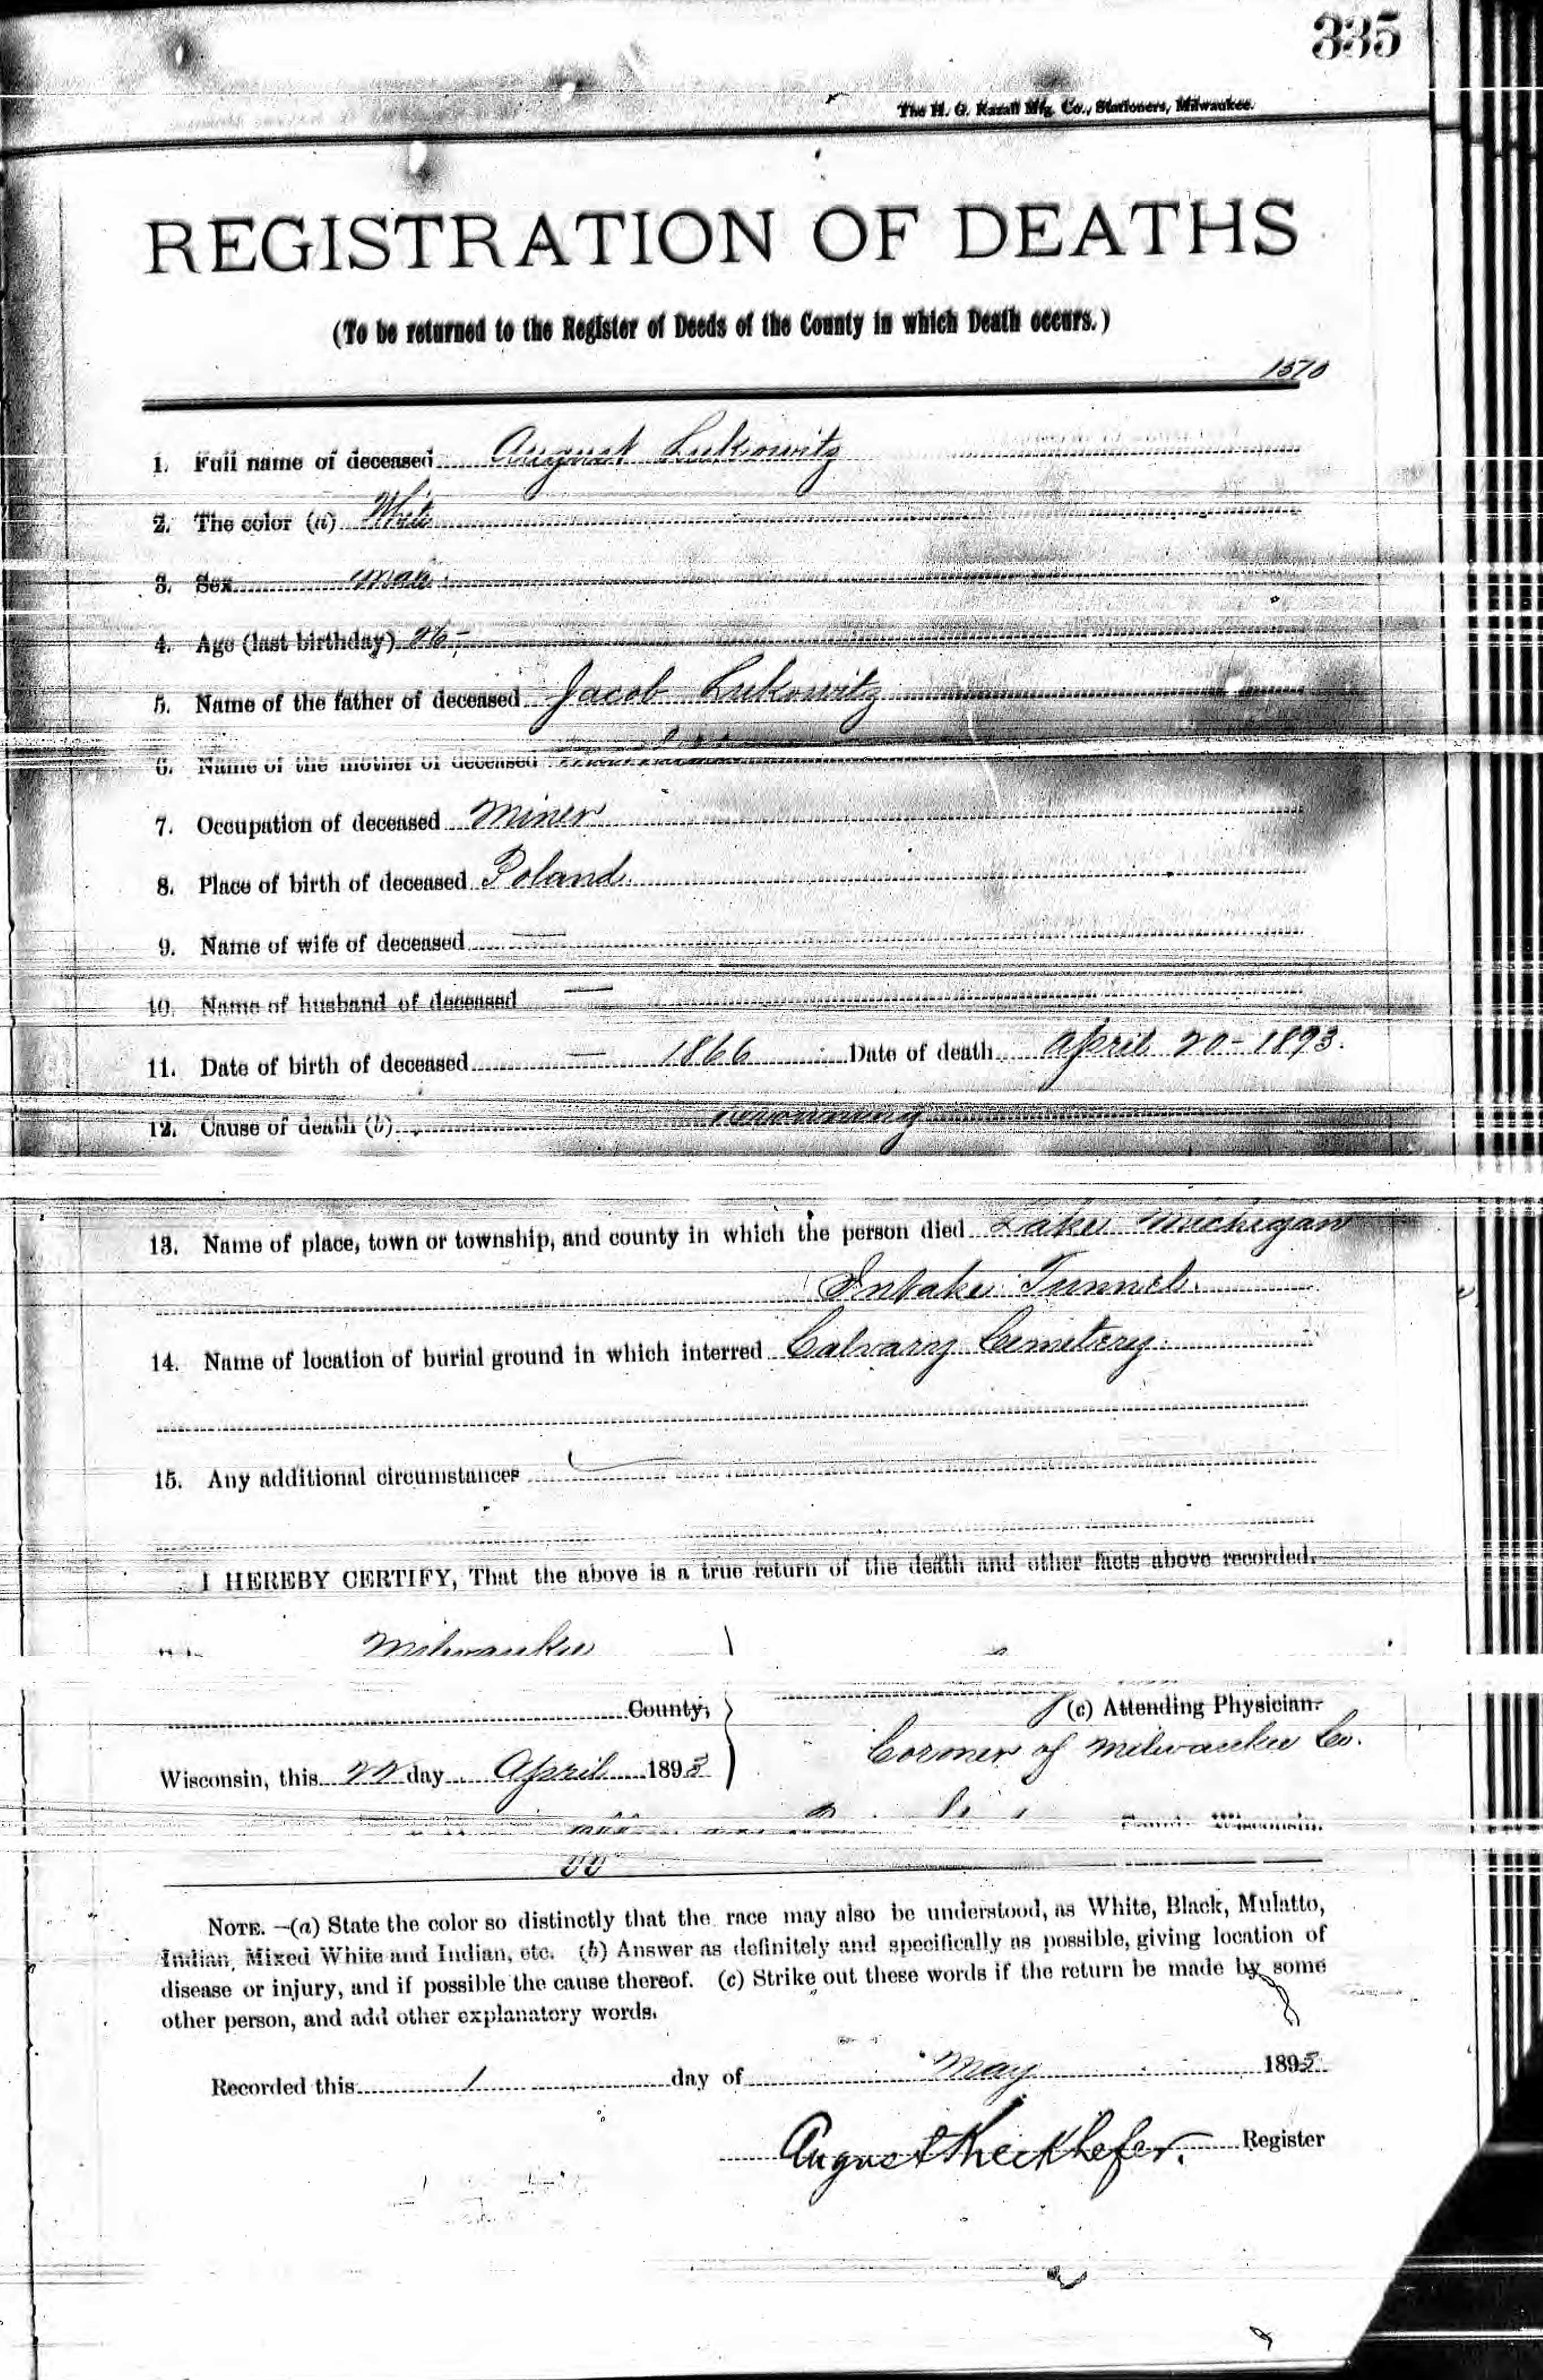 335
The H. G. Razall Mfg. Co., Stationers, Milwaukee.
REGISTRATION OF DEATHS
(To be returned to the Register of Deeds of the County in which Death occurs.)
1570
1. Full name of deceased August Lukowitz
2. The color (a) White
3. Sex man
4. Age (last birthday) 26
5. Name of the father of deceased Jacob Lukowitz
6. Name of the mother of deceased
7. Occupation of deceased Miner
8. Place of birth of deceased Poland
9. Name of wife of deceased —
10. Name of husband of deceased —
11. Date of birth of deceased — 1866 Date of death April 20 - 1893.
12. Cause of death (b) Drowning
13. Name of place, town or township, and county in which the person died Lake Michigan
Intake Tunnel
14. Name of location of burial ground in which interred Calvary Cemetery
15. Any additional circumstances
I HEREBY CERTIFY, That the above is a true return of the death and other facts above recorded.
Milwaukee
County, (c) Attending Physician.
Coroner of Milwaukee Co.
Wisconsin, this 22 day April 1893
Wisconsin.
NOTE. —(a) State the color so distinctly that the race may also be understood, as White, Black, Mulatto,
Indian, Mixed White and Indian, etc. (b) Answer as definitely and specifically as possible, giving location of
disease or injury, and if possible the cause thereof. (c) Strike out these words if the return be made by some
other person, and add other explanatory words.
Recorded this 1 day of May 1893
August Kieckhefer. Register